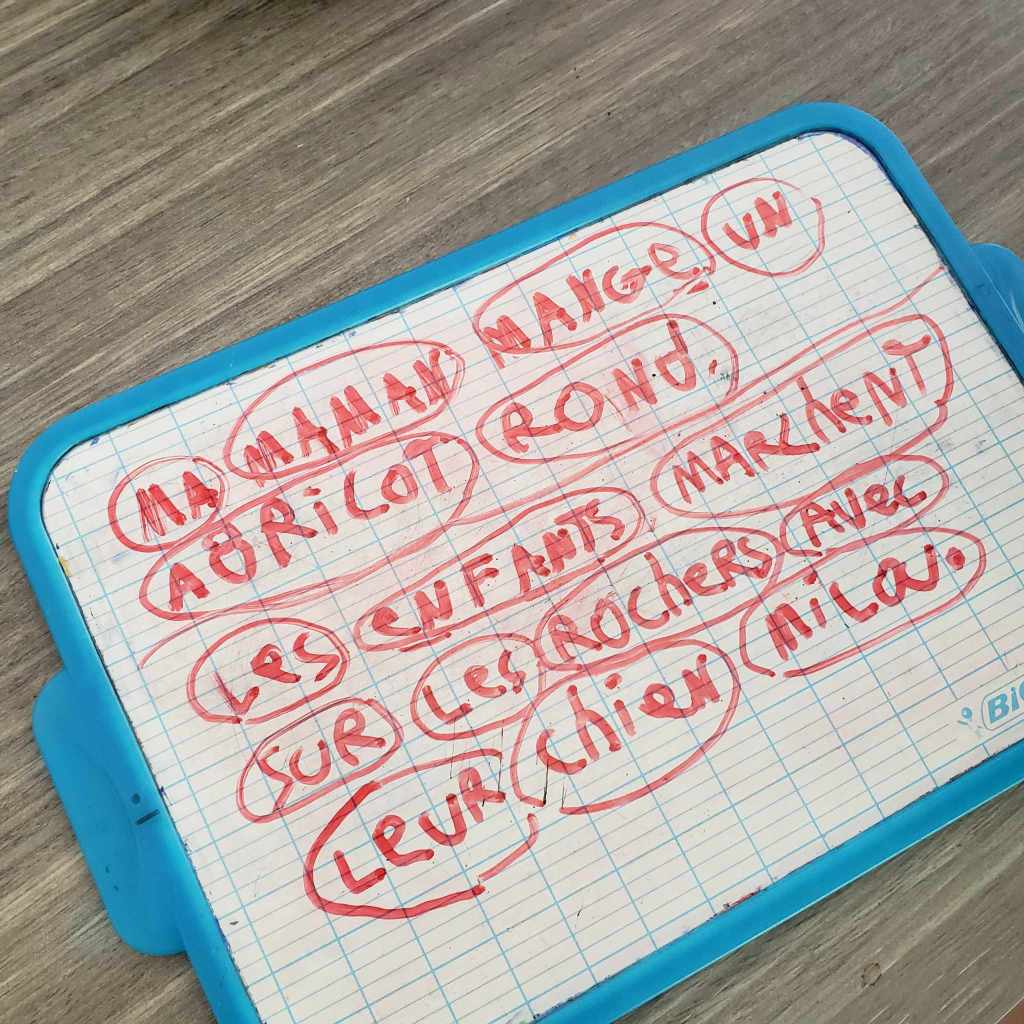 MA MAMAN MANGe UN
AbRiCOT ROND.
Les eNFANTS MARCheNT
SUR Les ROCheRS AVec
LeUR chieN MiLa.
BiC